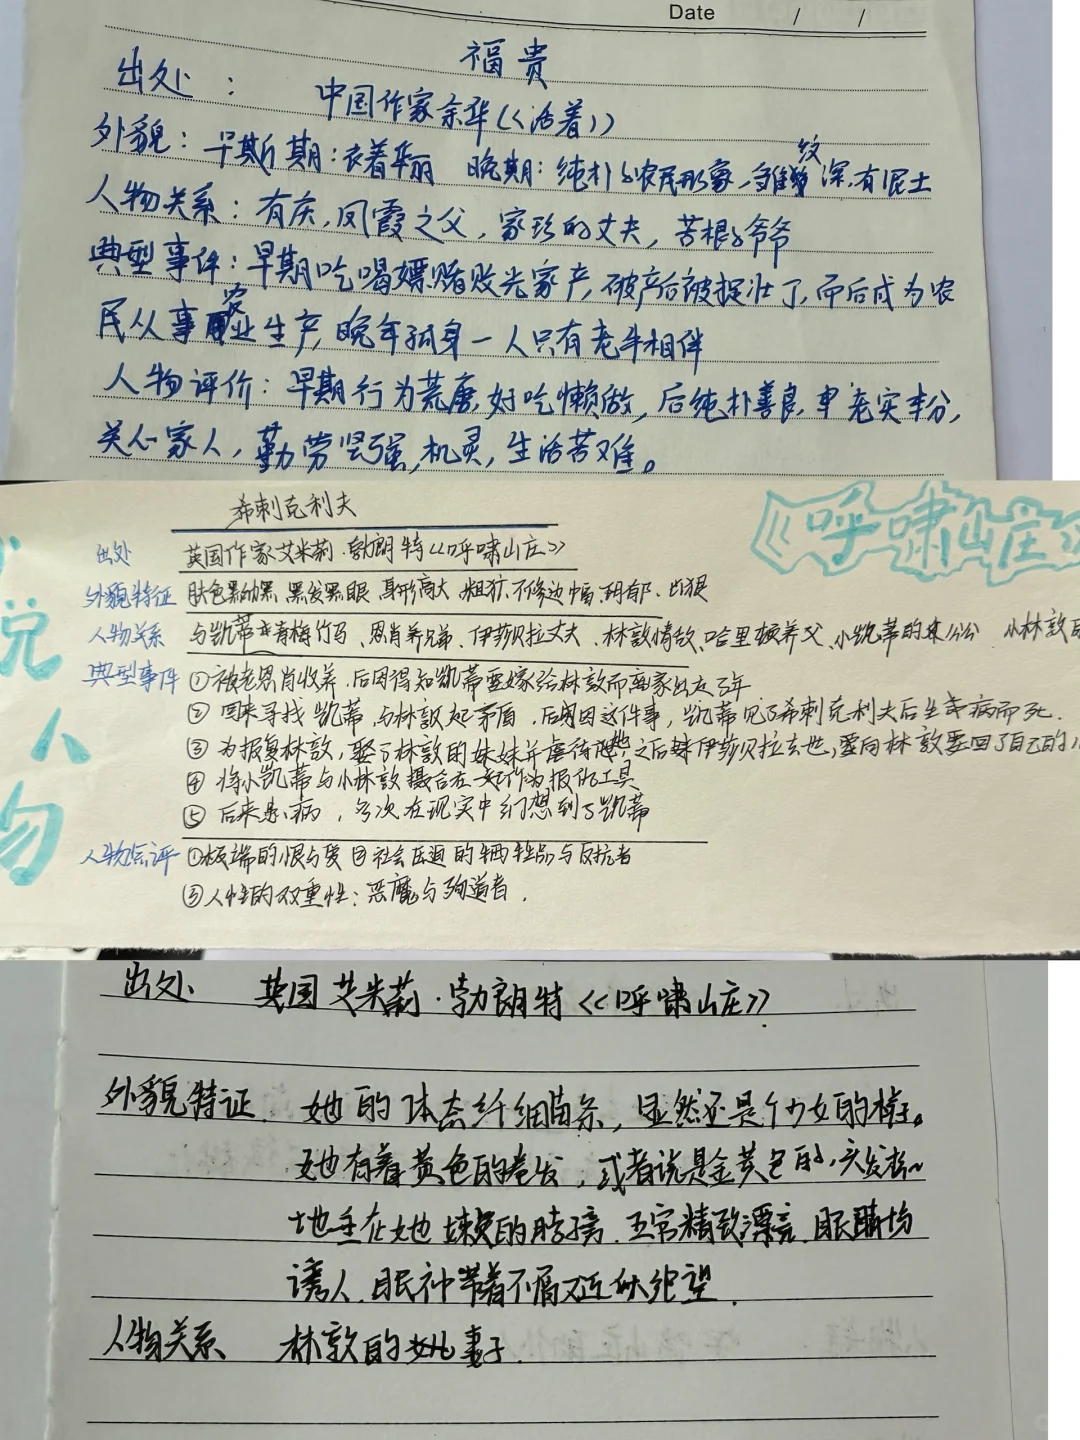 Date / /
福贵
出处: 中国作家余华《活着》
外貌:早期:衣着华丽 晚期:纯朴的农民形象,皱纹深,有泥土
人物关系:有庆,凤霞之父,家珍的丈夫,苦根的爷爷
典型事件:早期吃喝嫖赌败光家产,破产后被捉壮丁,而后成为农
民从事农业生产,晚年孤身一人只有老牛相伴
人物评价:早期行为荒唐,好吃懒做,后纯朴善良,老实本分,
关心家人,勤劳坚强,机灵,生活苦难。
《呼啸山庄》
说人物
希刺克利夫
出处 英国作家艾米莉·勃朗特《呼啸山庄》
外貌特征 肤色黑黝黑 黑发黑眼 身形高大 粗犷 不修边幅 阴郁
人物关系 与凯蒂青梅竹马、恩肖养兄弟、伊莎贝拉丈夫、林敦情敌、哈里顿养父、小凯蒂的公公 小林敦
典型事件 ①被老恩肖收养,后因得知凯蒂要嫁给林敦而离家出走3年
② 回来寻找凯蒂,与林敦起矛盾,后因这件事,凯蒂见了希刺克利夫后生病而死.
③ 为报复林敦,娶了林敦的妹妹并虐待她,之后伊莎贝拉去世,要向林敦要回了自己的儿
④ 将小凯蒂与小林敦撮合在一起作为报仇工具
⑤ 后来患病,多次在现实中幻想到了凯蒂
人物点评 ①极端的恨与爱 ②社会压迫的牺牲品与反抗者
③人性的双重性:恶魔与殉道者.
出处 英国艾米莉·勃朗特《呼啸山庄》
外貌特征 她的体态纤细苗条,显然还是个少女的样子。
她有着黄色的卷发,或者说是金黄色的,
地垂在她的脖子旁.五官精致漂亮.眼睛
诱人.眼神带着不屑又近似绝望.
人物关系 林敦的妻子.